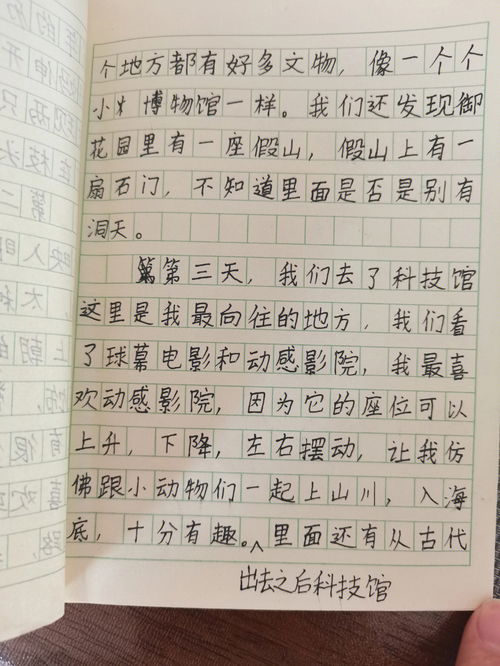 个地方都有好多文物，像一个个
小博物馆一样。我们还发现御
花园里有一座假山，假山上有一
扇石门，不知道里面是否是别有
洞天。
第三天，我们去了科技馆
这里是我最向往的地方，我们看
了球幕电影和动感影院，我最喜
欢动感影院，因为它的座位可以
上升，下降，左右摆动，让我仿
佛跟小动物们一起上山川，入海
底，十分有趣。里面还有从古代
出去之后科技馆